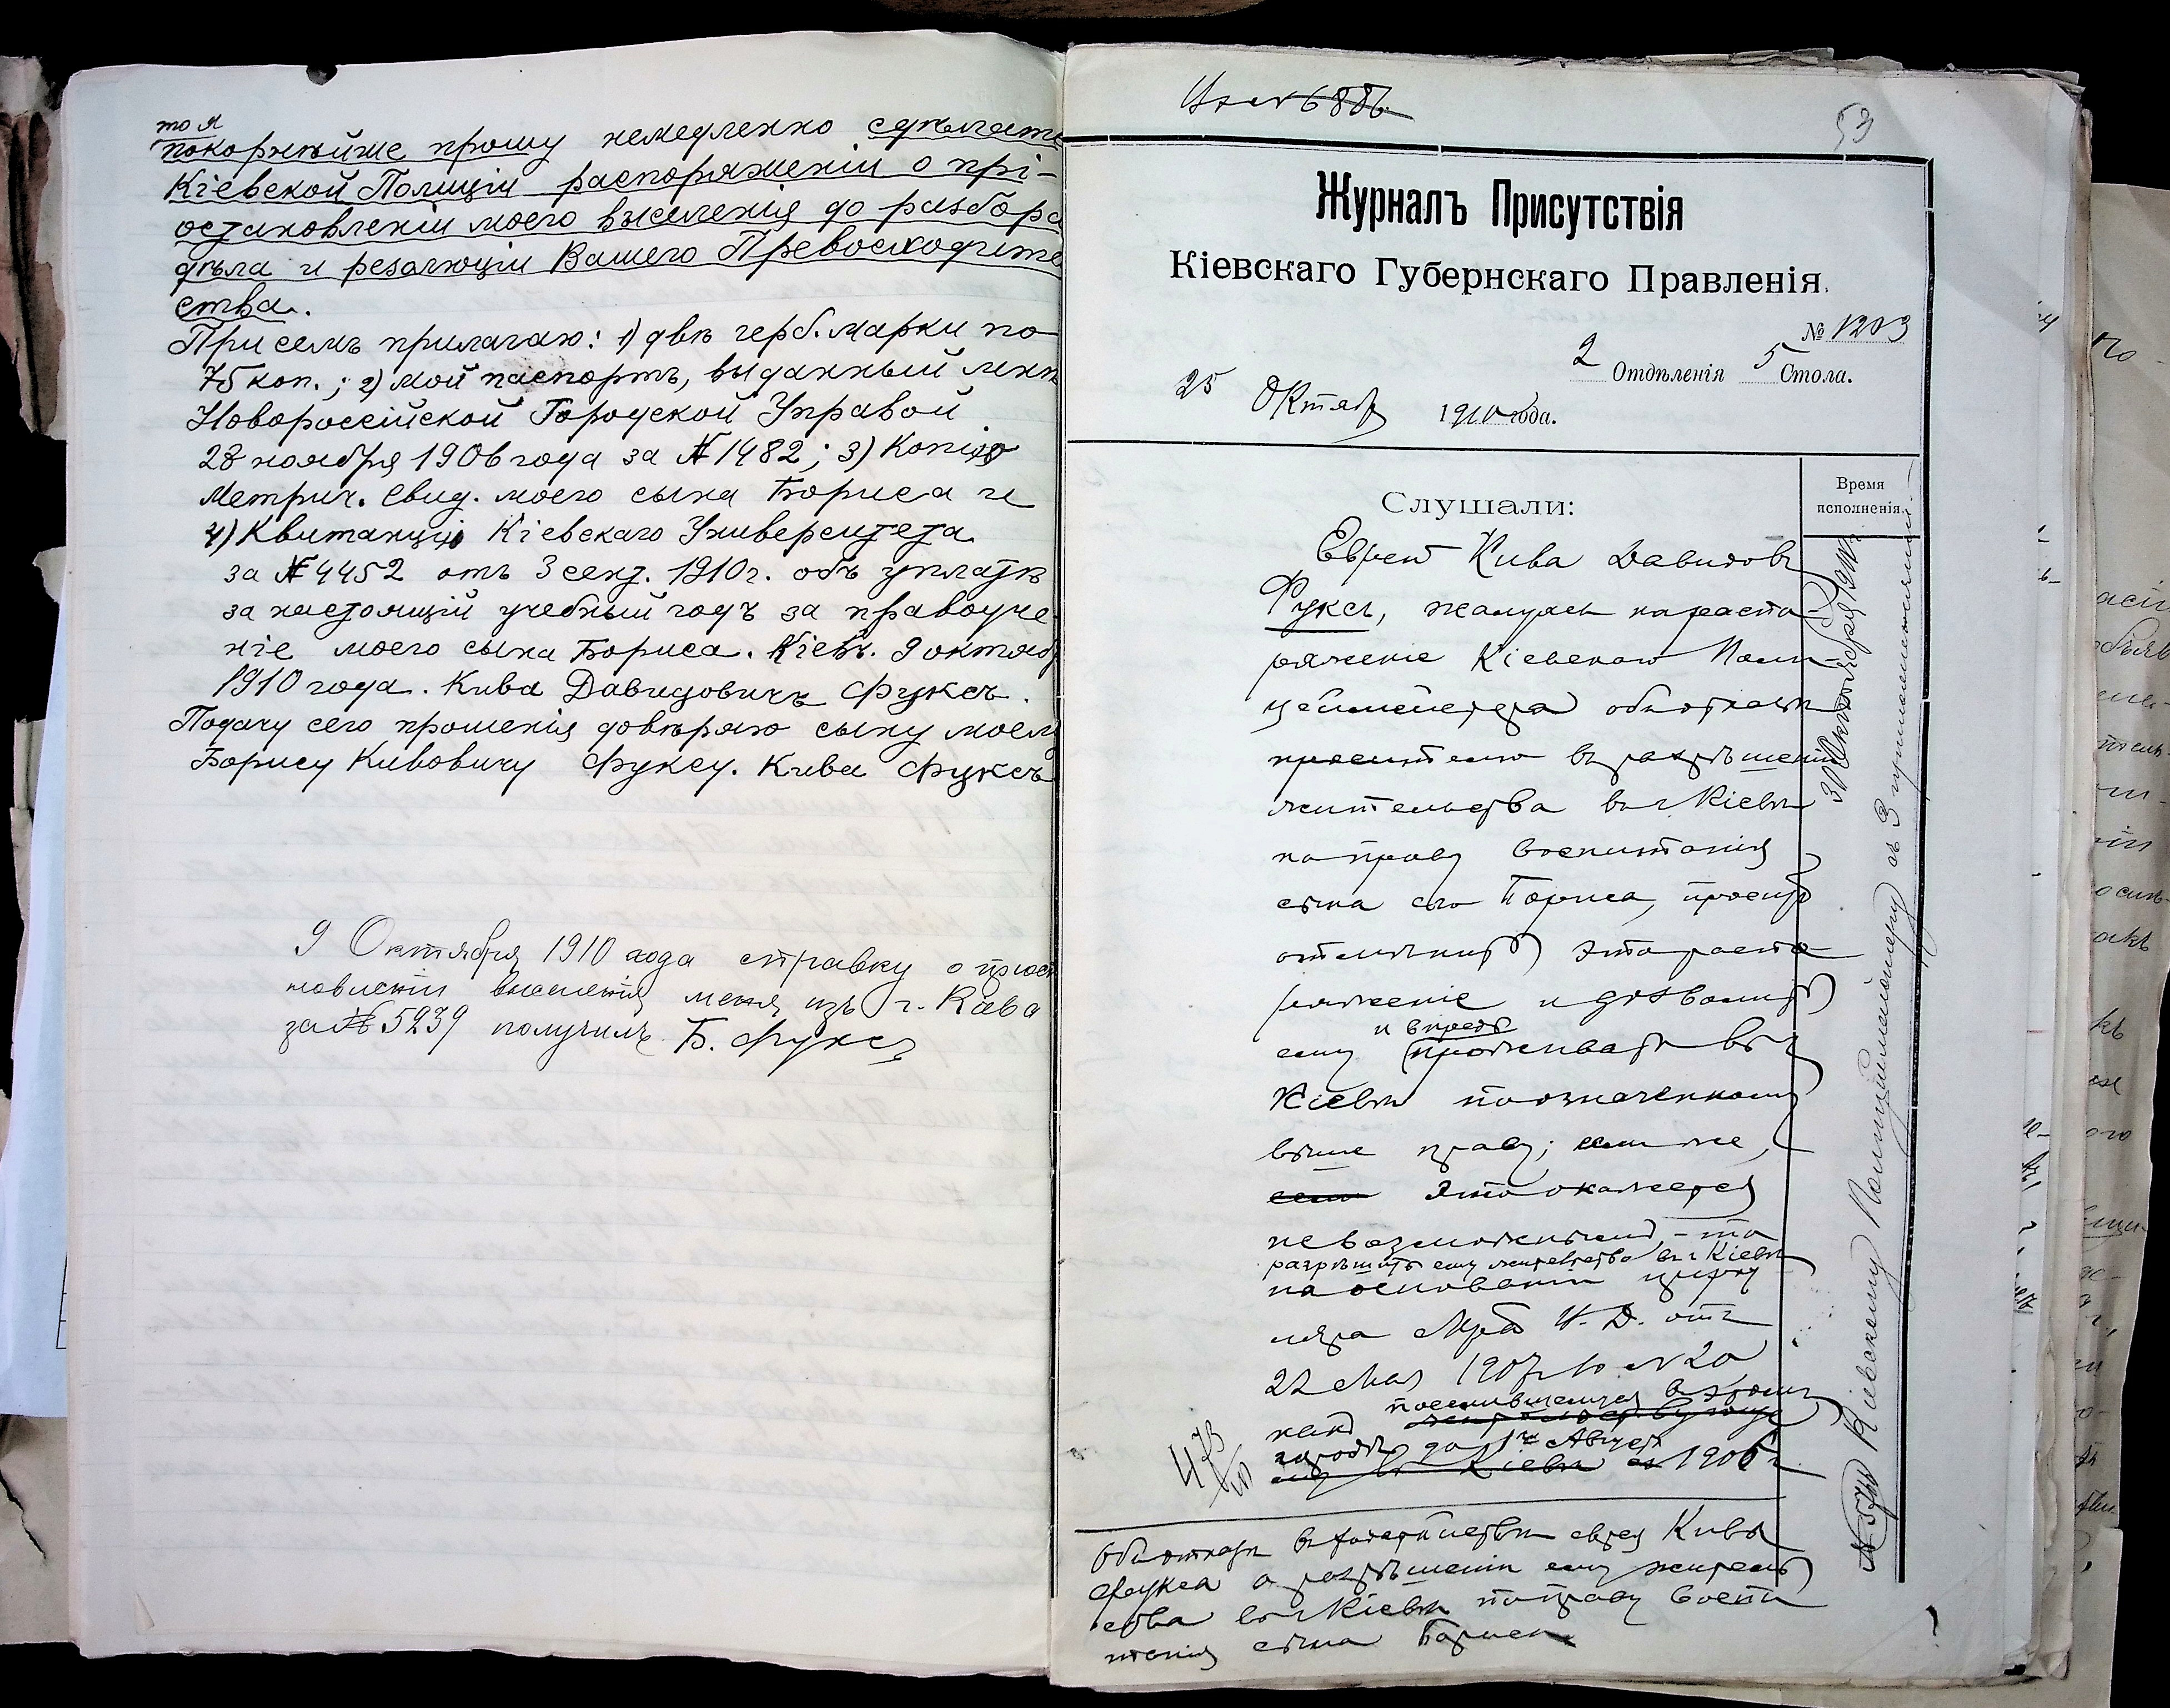 то я
покорнѣйше прошу немедленно сдѣлать
Кіевской Полиціи распоряженіи о прі-
остановленіи моего выселенія до разбора
дѣла и резолюціи Вашего Превосходите
ства.
При семъ прилагаю: 1) двѣ герб. марки по
75 коп.; 2) мой паспортъ, выданный мнѣ
Новоросійской Городской Управой
28 ноября 1906 года за № 1482; 3) Копію
Метрич. Свид. моего сына Бориса и
4) Квитанцію Кіевскаго Университета
за № 4452 отъ 3 сент. 1910 г. объ уплатѣ
за настоящій учебный годъ за правоуче-
ніе моего сына Бориса. Кіевъ. 9 октяб
1910 года. Кива Давидовичъ Фуксъ.
Подачу сего прошенія довѣряю сыну моему
Борису Кивовичу Фуксу. Кива Фуксъ
9 Октября 1910 года справку о пріост
новленіи выселенія меня изъ г. Кіева
за № 5239 получилъ Б. Фуксъ
№ 6886
53
Журналъ Присутствія
Кіевскаго Губернскаго Правленія.
№ 1203
2 Отдѣленія 5 Стола.
25 Октябр 1910 года.
Слушали:
Время
исполненія.
Еврей Кива Давидовъ
Фуксъ, жалуясь на распо-
ряженіе Кіевскаго Поли-
цеймейстера объ отказѣ
просителю въ разрѣшеніи
жительства въ г. Кіевѣ
по праву воспитанія
сына его Бориса, проситъ
отмѣнить это распо-
ряженіе и дозволить
и впредь
ему проживать въ
Кіевѣ по означенному
выше праву; если же,
если это окажется
невозможнымъ, - то
разрѣшить ему жительство въ г. Кіевѣ
на основаніи цирку
ляра М-ра В. Д. отъ
22 Мая 1907 г. за № 20
поселившемуся въ этомъ
какъ
городѣ до 1го Августа
Кіевѣ 1906 г.
473
объ отказѣ въ ходатайствѣ еврея Кивы
Фукса о разрѣшеніи ему житель
ства въ г. Кіевѣ по праву воспи
танія сына Бориса
30 Октября 1910 г.
Кіевскому Полиціймейстеру съ 3 приложеніями